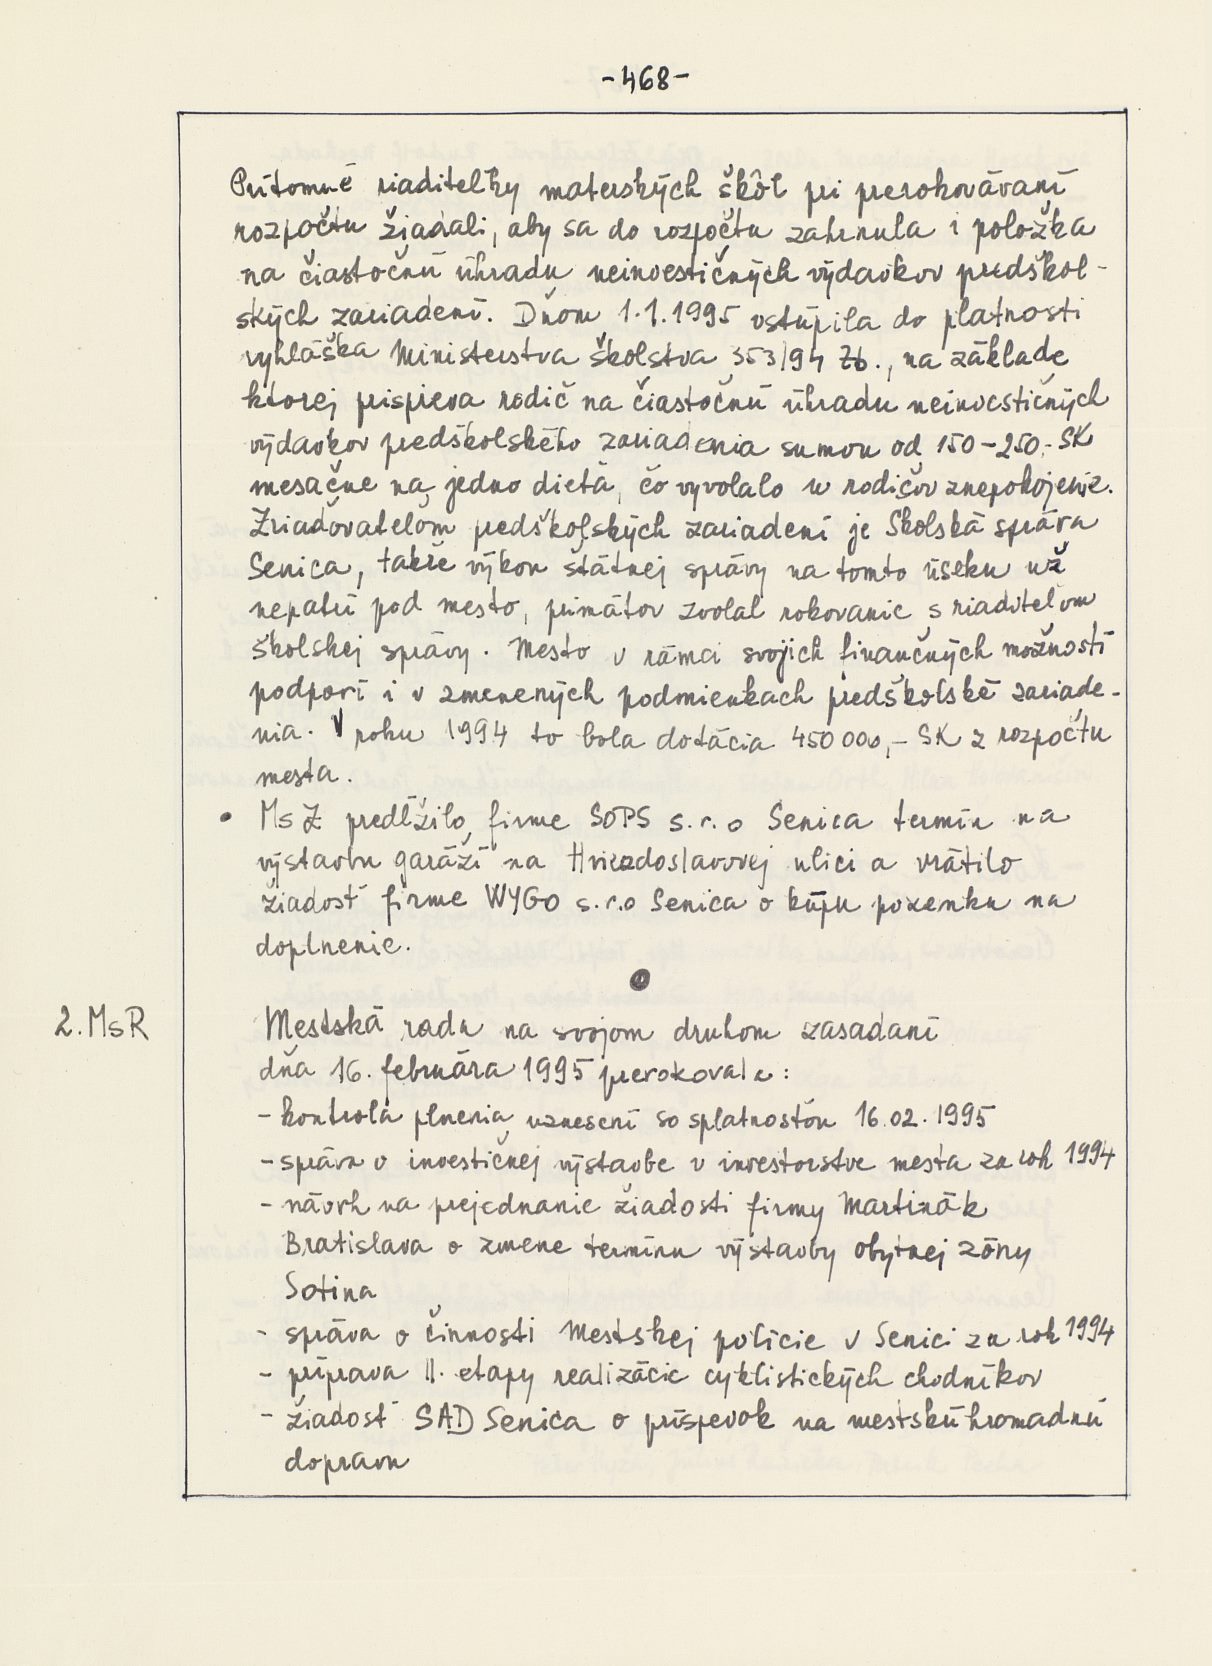 -468-
Prítomné riaditeľky materských škôl pri prerokovávaní
rozpočtu žiadali, aby sa do rozpočtu zahrnula i položka
na čiastočnú úhradu neinvestičných výdavkov predškol-
ských zariadení. Dňom 1.1.1995 vstúpila do platnosti
vyhláška Ministerstva školstva 353/94 Zb., na základe
ktorej prispieva rodič na čiastočnú úhradu neinvestičných
výdavkov predškolského zariadenia sumou od 150-250,- SK
mesačne na jedno dieťa, čo vyvolalo u rodičov znepokojenie.
Zriaďovateľom predškolských zariadení je Školská správa
Senica, takže výkon štátnej správy na tomto úseku už
nepatrí pod mesto, primátor zvolal rokovanie s riaditeľom
školskej správy. Mesto v rámci svojich finančných možností
podporí i v zmenených podmienkach predškolské zariade-
nia. V roku 1994 to bola dotácia 450 000,- SK z rozpočtu
mesta.
• MsZ predĺžilo firme SOPS s.r.o Senica termín na
výstavbu garáží na Hviezdoslavovej ulici a vrátilo
žiadosť firme WYGO s.r.o Senica o kúpu pozemku na
doplnenie.
2. MsR
Mestská rada na svojom druhom zasadaní
dňa 16. februára 1995 prerokovala:
- kontrola plnenia uznesení so splatnosťou 16.02.1995
- správa o investičnej výstavbe v investorstve mesta za rok 1994
- návrh na prejednanie žiadosti firmy Martinák
Bratislava o zmene termínu výstavby obytnej zóny
Sotina
- správa o činnosti Mestskej polície v Senici za rok 1994
- príprava II. etapy realizácie cyklistických chodníkov
- žiadosť SAD Senica o príspevok na mestskú hromadnú
dopravu